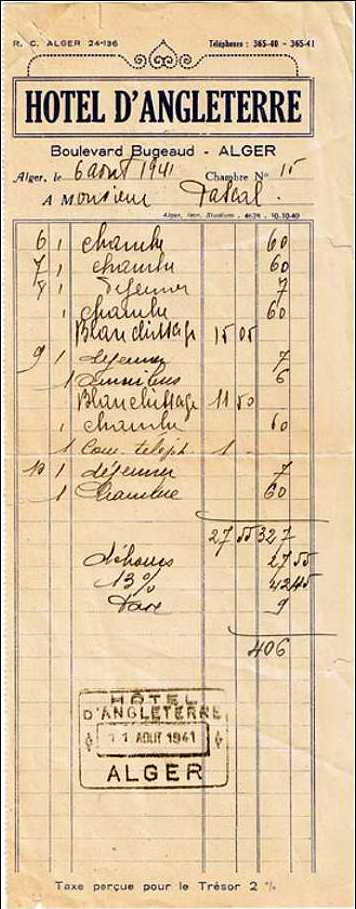 R. C. ALGER 24-136 Téléphones : 365-40 - 365-41
HOTEL D'ANGLETERRE
Boulevard Bugeaud - ALGER
Alger, le 6 août 1941 Chambre N° 15
A Monsieur Pascal.
Alger, Impr. Studium - 4624 - 10.10.40
6 1 chambre 60
7 1 chambre 60
8 1 déjeuner 7
1 chambre 60
Blanchissage 15 05
9 1 déjeuner 7
1 omnibus 6
Blanchissage 11 50
1 chambre 60
1 Com. teleph 1 -
10 1 déjeuner 7
1 Chambre 60
27 55 327
débours 27 55
13% 42 45
Taxe 9
406
HÔTEL
D'ANGLETERRE
11 AOUT 1941
ALGER
Taxe perçue pour le Trésor 2 %